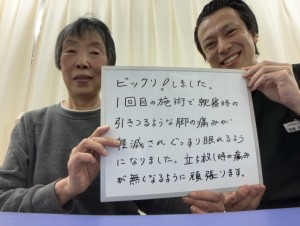 ビックリ!しました。
1回目の施術で就寝時の
引きつるような脚の痛みが
軽減されぐっすり眠れるよう
になりました。立ち放し時の痛み
が無くなるように頑張ります。